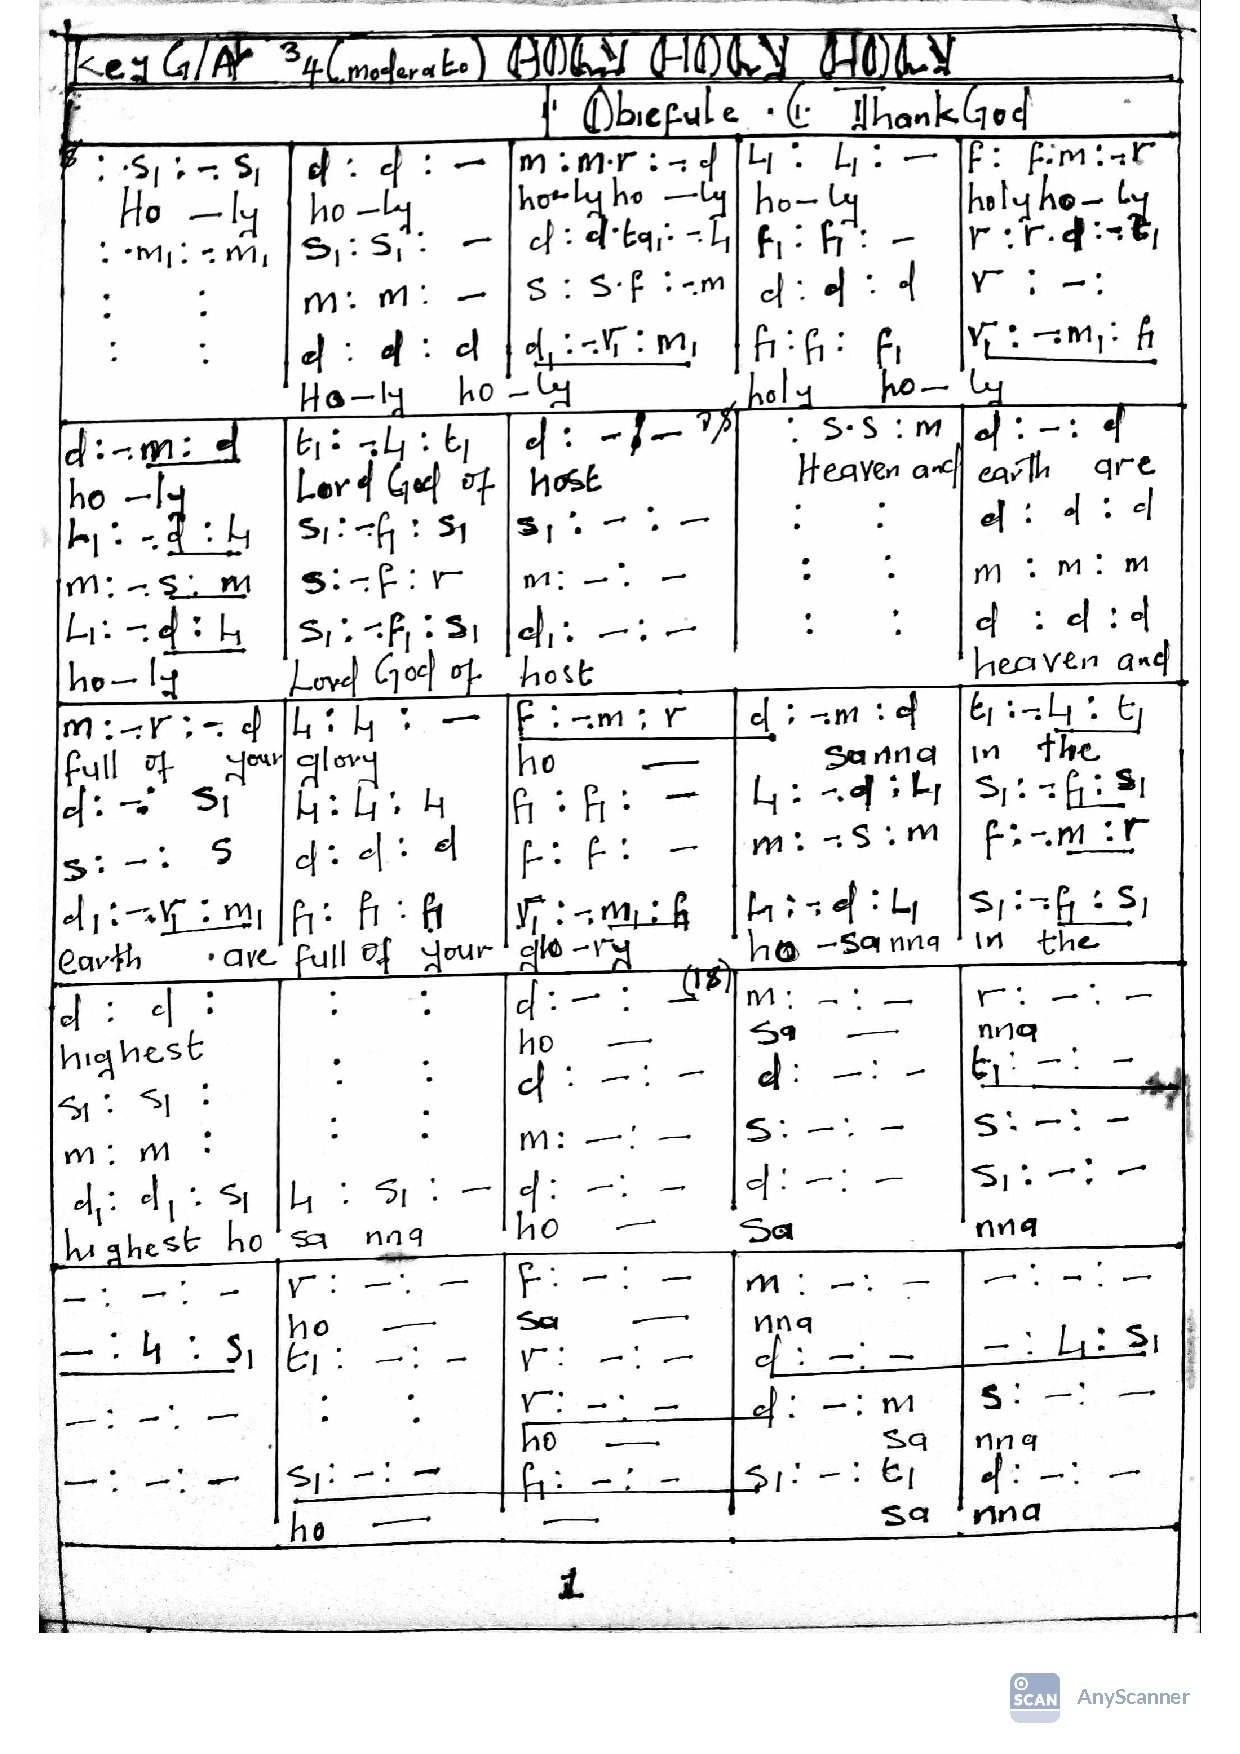 Key G/Ab 3/4 (moderato) HOLY HOLY HOLY
Obiefule . C ThankGod
: .s₁ : -. s₁ | d : d : — | m : m.r : -. d | l₁ : l₁ : — | f : f.m : -. r
Ho — ly | ho — ly | ho — ly ho — ly | ho — ly | holy ho — ly
: .m₁ : -. m₁ | s₁ : s₁ : — | d : d.ta₁ : -. l₁ | f₁ : f₁ : — | r : r.d : -. t₁
: : | m : m : — | s : s.f : -. m | d : d : d | r : — :
: : | d : d : d | d₁ : -. r₁ : m₁ | f₁ : f₁ : f₁ | r₁ : -. m₁ : f₁
Ho — ly ho — ly holy ho — ly
d : -. m : d | t₁ : -. l₁ : t₁ | d : — : — | : s.s : m | d : — : d
ho — ly | Lord God of | host | Heaven and | earth are
l₁ : -. d : l₁ | s₁ : -. f₁ : s₁ | s₁ : — : — | : : | d : d : d
m : -. s : m | s : -. f : r | m : — : — | : : | m : m : m
l₁ : -. d : l₁ | s₁ : -. f₁ : s₁ | d₁ : — : — | : : | d : d : d
ho — ly | Lord God of | host | heaven and
m : -. r : -. d | l₁ : l₁ : — | f : -. m : r | d : -. m : d | t₁ : -. l₁ : t₁
full of your | glory | ho — | sanna | in the
d : — : s₁ | l₁ : l₁ : l₁ | f₁ : f₁ : — | l₁ : -. d : l₁ | s₁ : -. f₁ : s₁
s : — : s | d : d : d | f : f : — | m : -. s : m | f : -. m : r
d₁ : -. r₁ : m₁ | f₁ : f₁ : f₁ | r₁ : -. m₁ : f₁ | l₁ : -. d : l₁ | s₁ : -. f₁ : s₁
earth . are | full of your | glo — ry | ho — sanna | in the
d : d : | : : | d : — : — (18) | m : — : — | r : — : —
highest | ho — | sa — | nna
s₁ : s₁ : | : : | d : — : — | d : — : — | t₁ : — : —
m : m : | : : | m : — : — | s : — : — | s : — : —
d₁ : d₁ : s₁ | l₁ : s₁ : — | d : — : — | d : — : — | s₁ : — : —
highest ho | sa nna | ho — | sa | nna
— : — : — | r : — : — | f : — : — | m : — : — | — : — : —
ho — | sa — | nna
— : l₁ : s₁ | t₁ : — : — | r : — : — | d : — : — | — : l₁ : s₁
— : — : — | : : | r : — : — | d : — : m | s : — : —
ho — | sa | nna
— : — : — | s₁ : — : — | f₁ : — : — | s₁ : — : t₁ | d : — : —
ho — — | sa | nna
1
SCAN AnyScanner